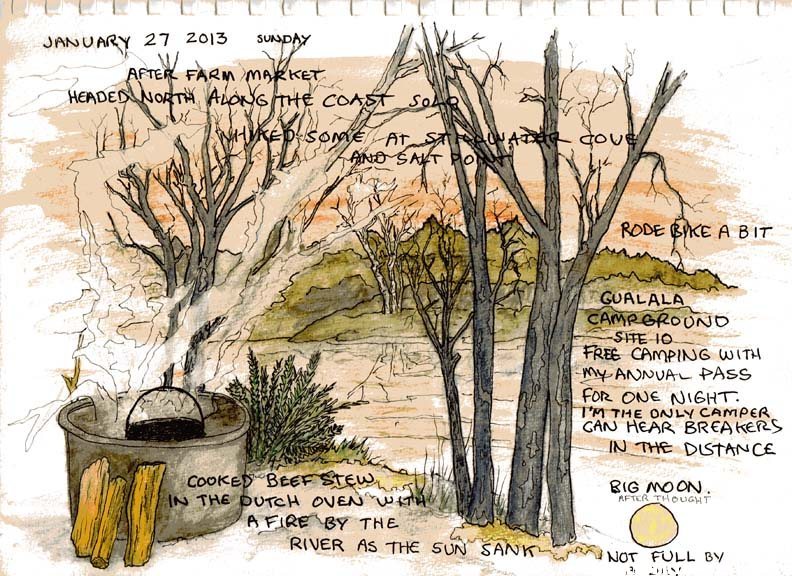 JANUARY 27 2013 SUNDAY
AFTER FARM MARKET
HEADED NORTH ALONG THE COAST SOLO
HIKED SOME AT STILLWATER COVE
AND SALT POINT
RODE BIKE A BIT
GUALALA
CAMPGROUND
SITE 10
FREE CAMPING WITH
MY ANNUAL PASS
FOR ONE NIGHT.
I'M THE ONLY CAMPER
CAN HEAR BREAKERS
IN THE DISTANCE
COOKED BEEF STEW
IN THE DUTCH OVEN WITH
A FIRE BY THE
RIVER AS THE SUN SANK
BIG MOON.
AFTER THOUGHT
NOT FULL BY